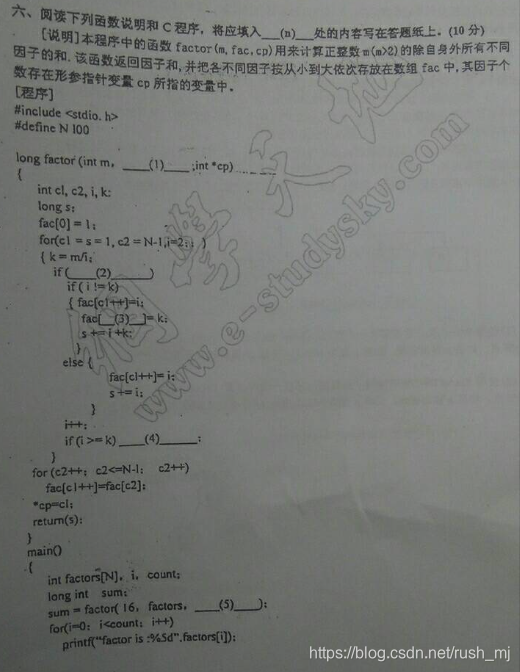 六、阅读下列函数说明和 C 程序，将应填入___(n)___处的内容写在答题纸上。(10 分)
[说明]本程序中的函数 factor(m, fac, cp) 用来计算正整数 m(m>2)的除自身外所有不同
因子的和. 该函数返回因子和, 并把各不同因子按从小到大依次存放在数组 fac 中, 其因子个
数存在形参指针变量 cp 所指的变量中。
[程序]
#include <stdio.h>
#define N 100
long factor (int m, ____(1)____ ;int *cp)
{
int c1, c2, i, k;
long s;
fac[0] = 1;
for(c1 = s = 1, c2 = N-1,i=2; ; )
{ k = m/i;
if (____(2)______)
if ( i != k)
{ fac[c1++]=i;
fac[__(3)__]= k;
s += i +k;
}
else {
fac[c1++]= i;
s += i;
}
i++;
if (i >= k) ____(4)______;
}
for (c2++; c2<=N-1; c2++)
fac[c1++]=fac[c2];
*cp=c1;
return(s);
}
main()
{
int factors[N], i, count;
long int sum;
sum = factor( 16, factors, ____(5)____);
for(i=0; i<count; i++)
printf("factor is :%5d",factors[i]);
网学天地
www.e-studysky.com
https://blog.csdn.net/rush_mj